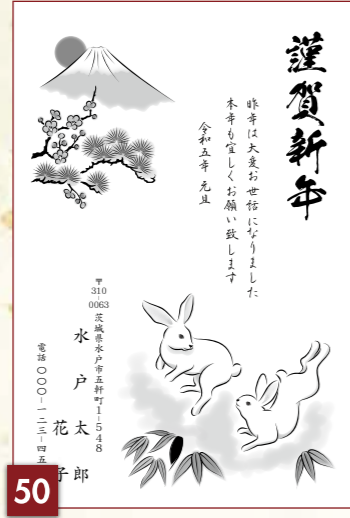 謹賀新年
昨年は大変お世話になりました
本年も宜しくお願い致します
令和五年 元旦
〒310-0063 茨城県水戸市五軒町1-548
水戸 太郎
花子
電話 〇〇〇-一二三-四五
50